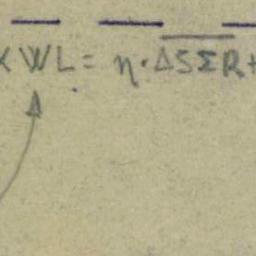 WL = η·ΔSΣR+